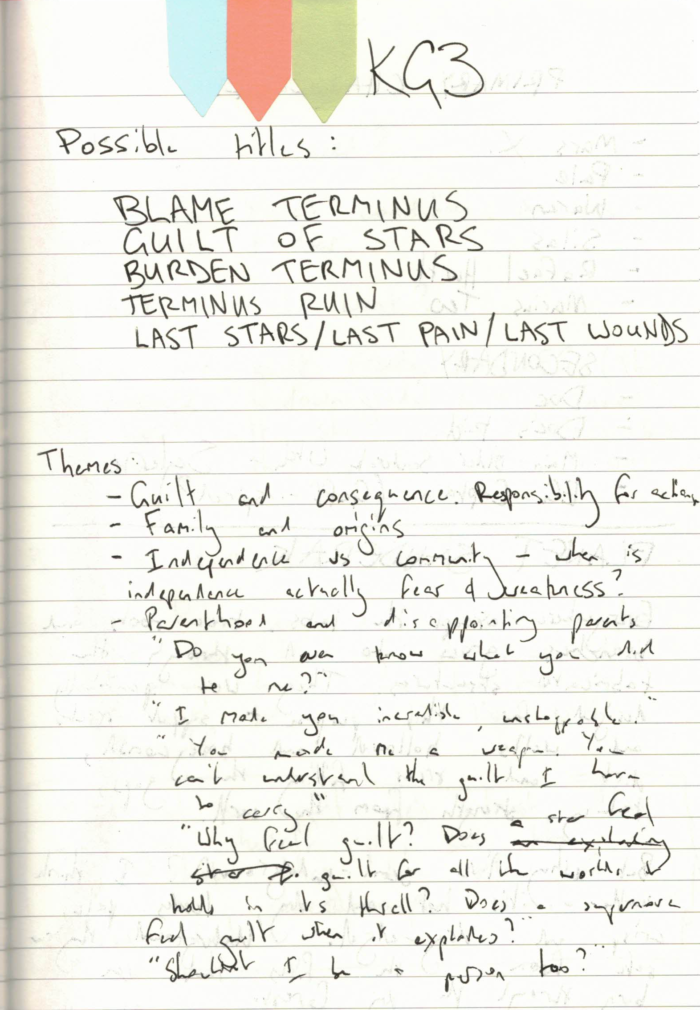 KG3
Possible titles:
BLAME TERMINUS
GUILT OF STARS
BURDEN TERMINUS
TERMINUS RUIN
LAST STARS/LAST PAIN/LAST WOUNDS
Themes:
- Guilt and consequence. Responsibility for action
- Family and origins
- Independence vs community - when is
independence actually fear & weakness?
- Parenthood and disappointing parents
"Do you even know what you did
to me?"
"I made you incredible, unstoppable."
"You made me a weapon. You
can't understand the guilt I have
to carry."
"Why feel guilt? Does a star feel
guilt for all the worlds it
holds in its thrall? Does a supernova
feel guilt when it explodes?"
"Shouldn't I be a person too?"